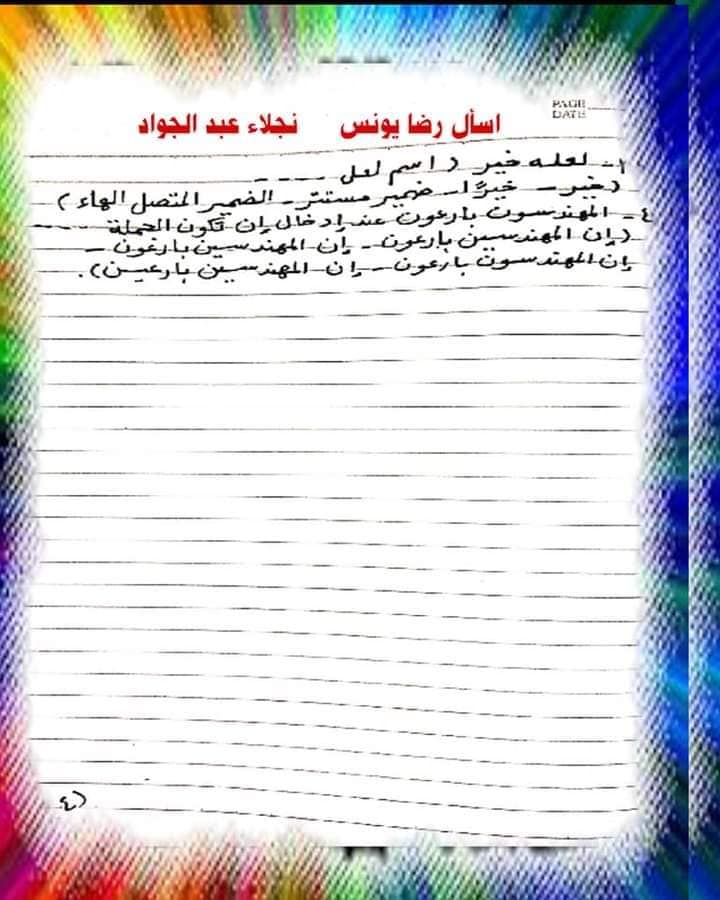 PAGE
DATE
اسأل رضا يونس نجلاء عبد الجواد
٣- لعله خير ( اسم لعل ....
(خير - خيرًا - ضمير مستتر - الضمير المتصل الهاء )
٤- المهندسون بارعون عند إدخال إن تكون الجملة ....
(إن المهندسين بارعون - إن المهندسين بارغون -
إن المهندسون بارعون - إن المهندسين بارعين).
(٤